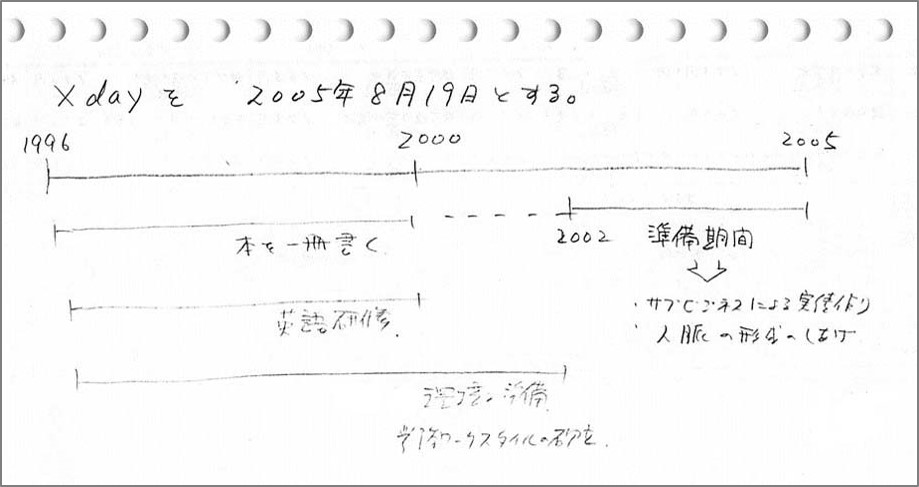 X dayを 2005年8月19日とする。
1996 2000 2005
本を一冊書く
2002 準備期間
・サブビジネスによる実績作り
英語研修.
・人脈の形成の
準備
ワークスタイルの研究.